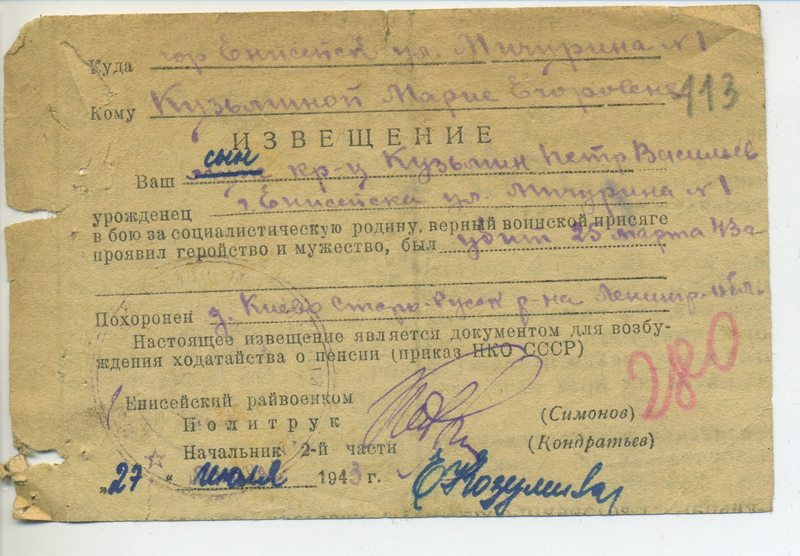 Куда гор Енисейск ул. Мичурина №1
Кому Кузьминой Марие Егоровне
113
ИЗВЕЩЕНИЕ
сын
Ваш кр-ц Кузьмин Петр Васильев
урожденец г. Енисейска ул. Мичурина №1
в бою за социалистическую родину, верный воинской присяге
проявил геройство и мужество, был убит 25 марта 43 г
Похоронен д. Киево Старо-Русск р-на Ленингр. обл.
Настоящее извещение является документом для возбу-
ждения ходатайства о пенсии (приказ НКО СССР)
280
Енисейский райвоенком
Политрук (Симонов)
Начальник 2-й части (Кондратьев)
„27 “ июля 1943 г.